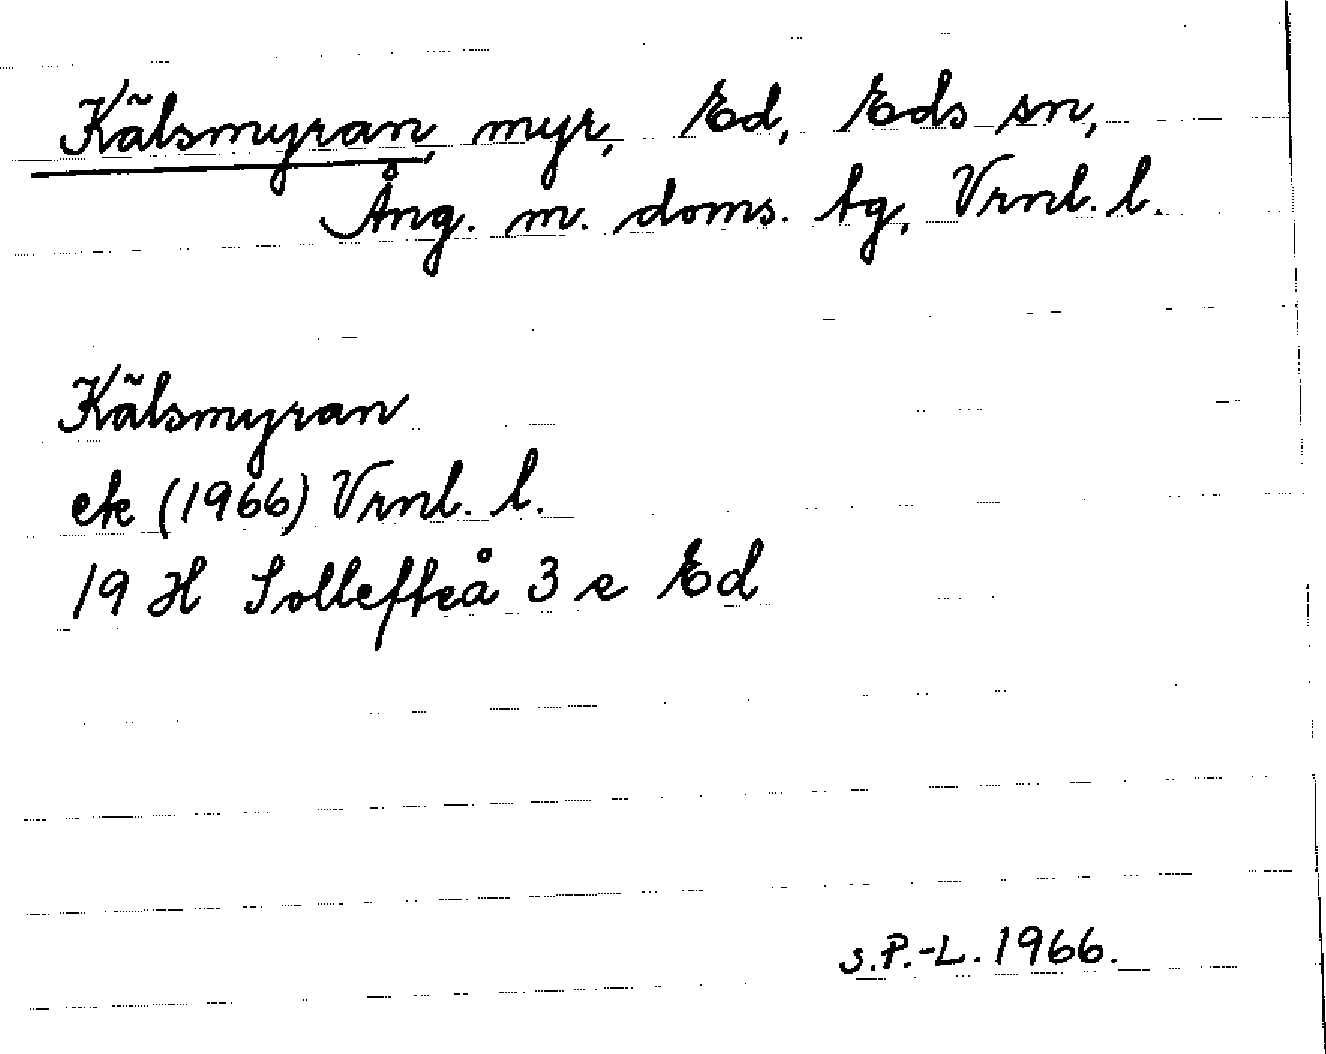 Kälsmyran, myr, Ed, Eds sn,
Ång. m. doms. tg, Vrnl. l.
Kälsmyran
ek (1966) Vrnl. l.
19 H Sollefteå 3 e Ed
S.P.-L. 1966.